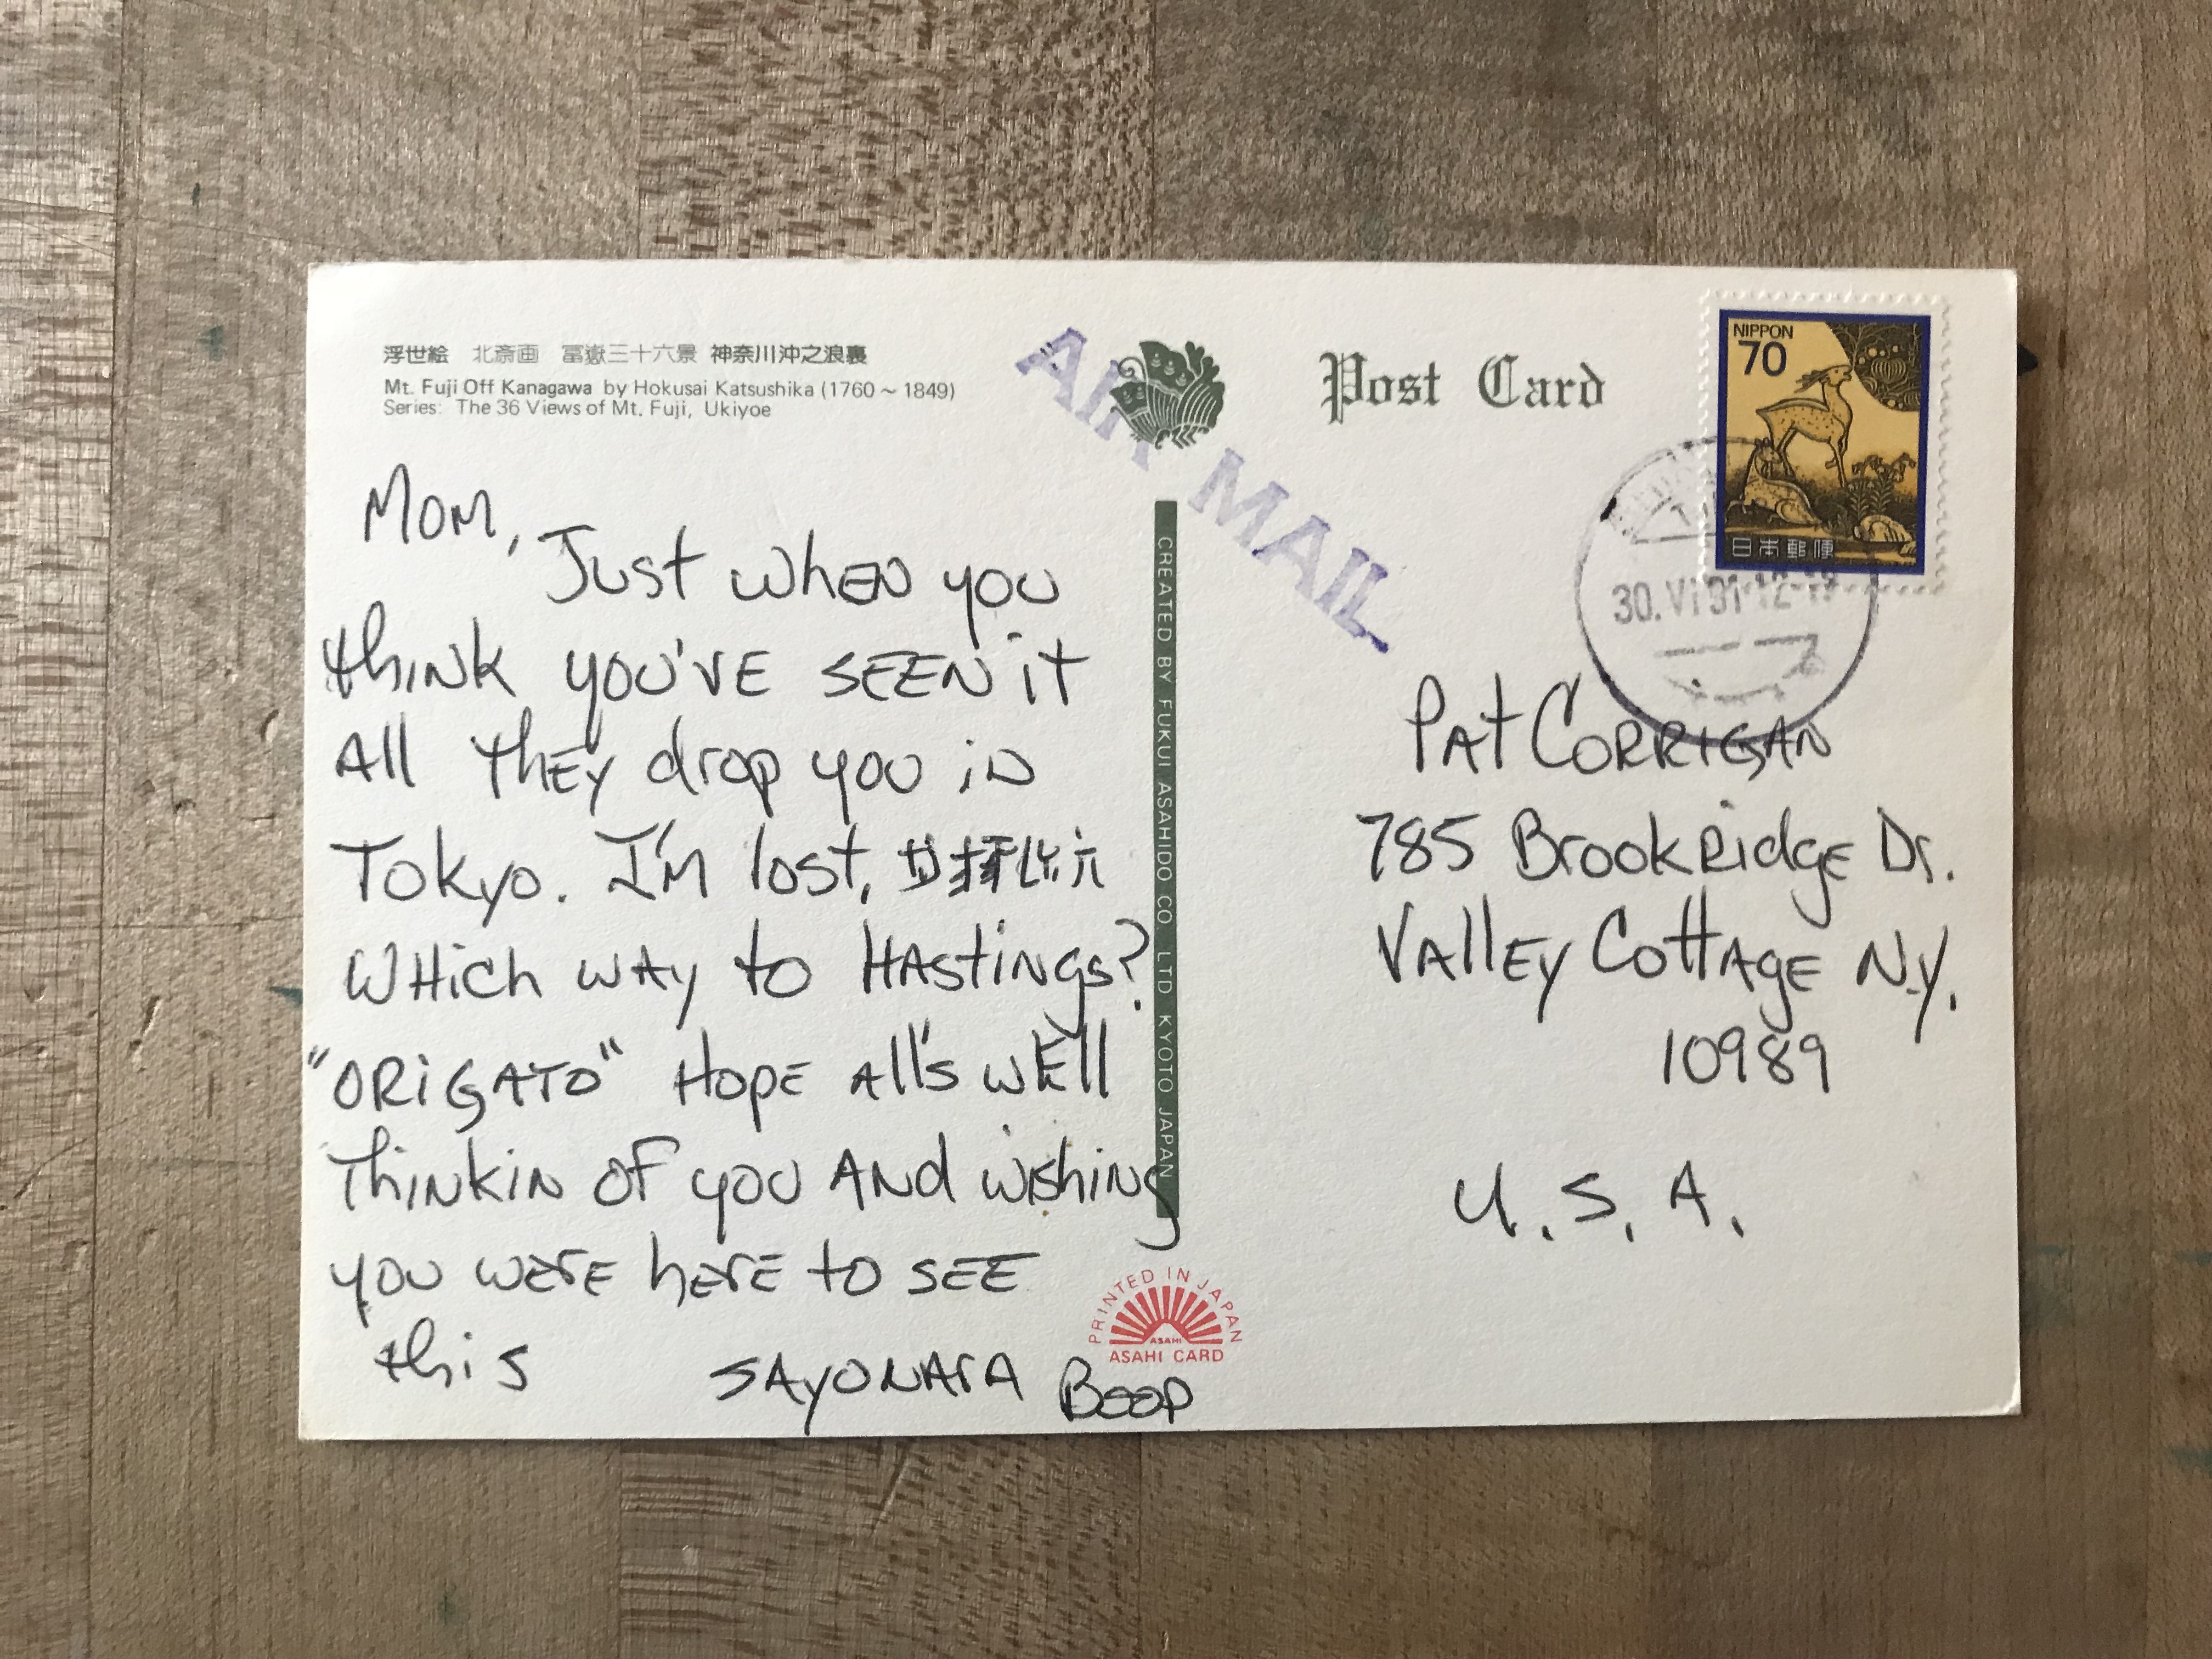 浮世絵 北斎画 冨嶽三十六景 神奈川沖之浪裏
Mt. Fuji Off Kanagawa by Hokusai Katsushika (1760～1849)
Series: The 36 Views of Mt. Fuji, Ukiyoe
AIR MAIL
Post Card
NIPPON
70
日本郵便
30.VI 91 12-
Mom,
Just when you
think you've seen it
All they drop you in
Tokyo. I'm lost,
Which way to Hastings?
"ORIGATO" Hope all's well
Thinkin of you And wishing
you were here to see
this
SAYONARA Boop
CREATED BY FUKUI ASAHIDO CO LTD KYOTO JAPAN
PRINTED IN JAPAN
ASAHI
ASAHI CARD
Pat Corrigan
785 Brookridge Dr.
Valley Cottage N.Y.
10989
U.S.A.